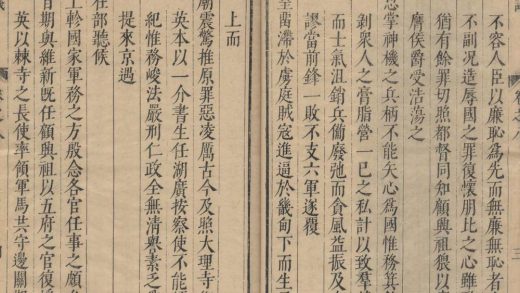 不容人臣以廉恥為先而無廉無恥者
不副况造辱國之罪復懷朋比之心雖
猶有餘罪切照都督同知顧興祖猥以
膺侯爵受浩蕩之
忝掌神機之兵柄不能矢心為國惟務箕
剥衆人之膏脂營一己之私計以致羣
而士氣沮銷兵備廢弛而貪風益振及
謬當前鋒一敗不支六軍遂覆
至留滯於虜庭賊寇進逼於畿甸下而生
上而
廟震驚推原罪惡凌厲古今及照大理寺
英本以一介書生任湖廣按察使不能
紀惟務峻法嚴刑仁政全無清譽素乏
提來京遇
在部聽候
上軫國家軍務之方殷念各官任事之頗
自期與維新旣任顧興祖以五府之官復
英以棘寺之長使率領軍馬共守邊關